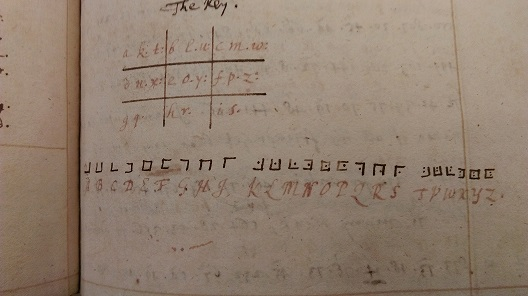 The Key.
a. k. t: b l. u: c m. w:
d n. x: e o. y: f. p. z:
g q. h r. i s.
A B C D E F G H J K L M N O P Q R S T V W X Y Z.